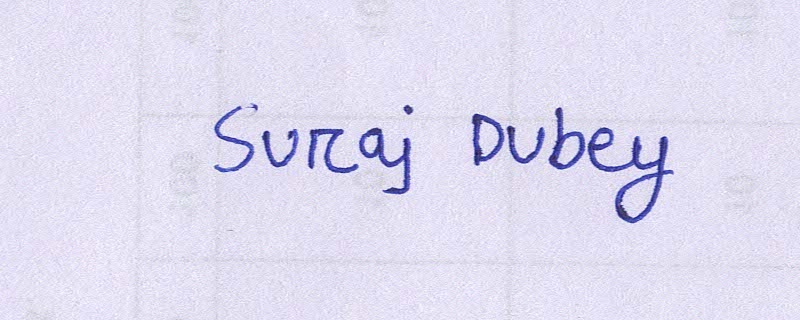 Suraj Dubey